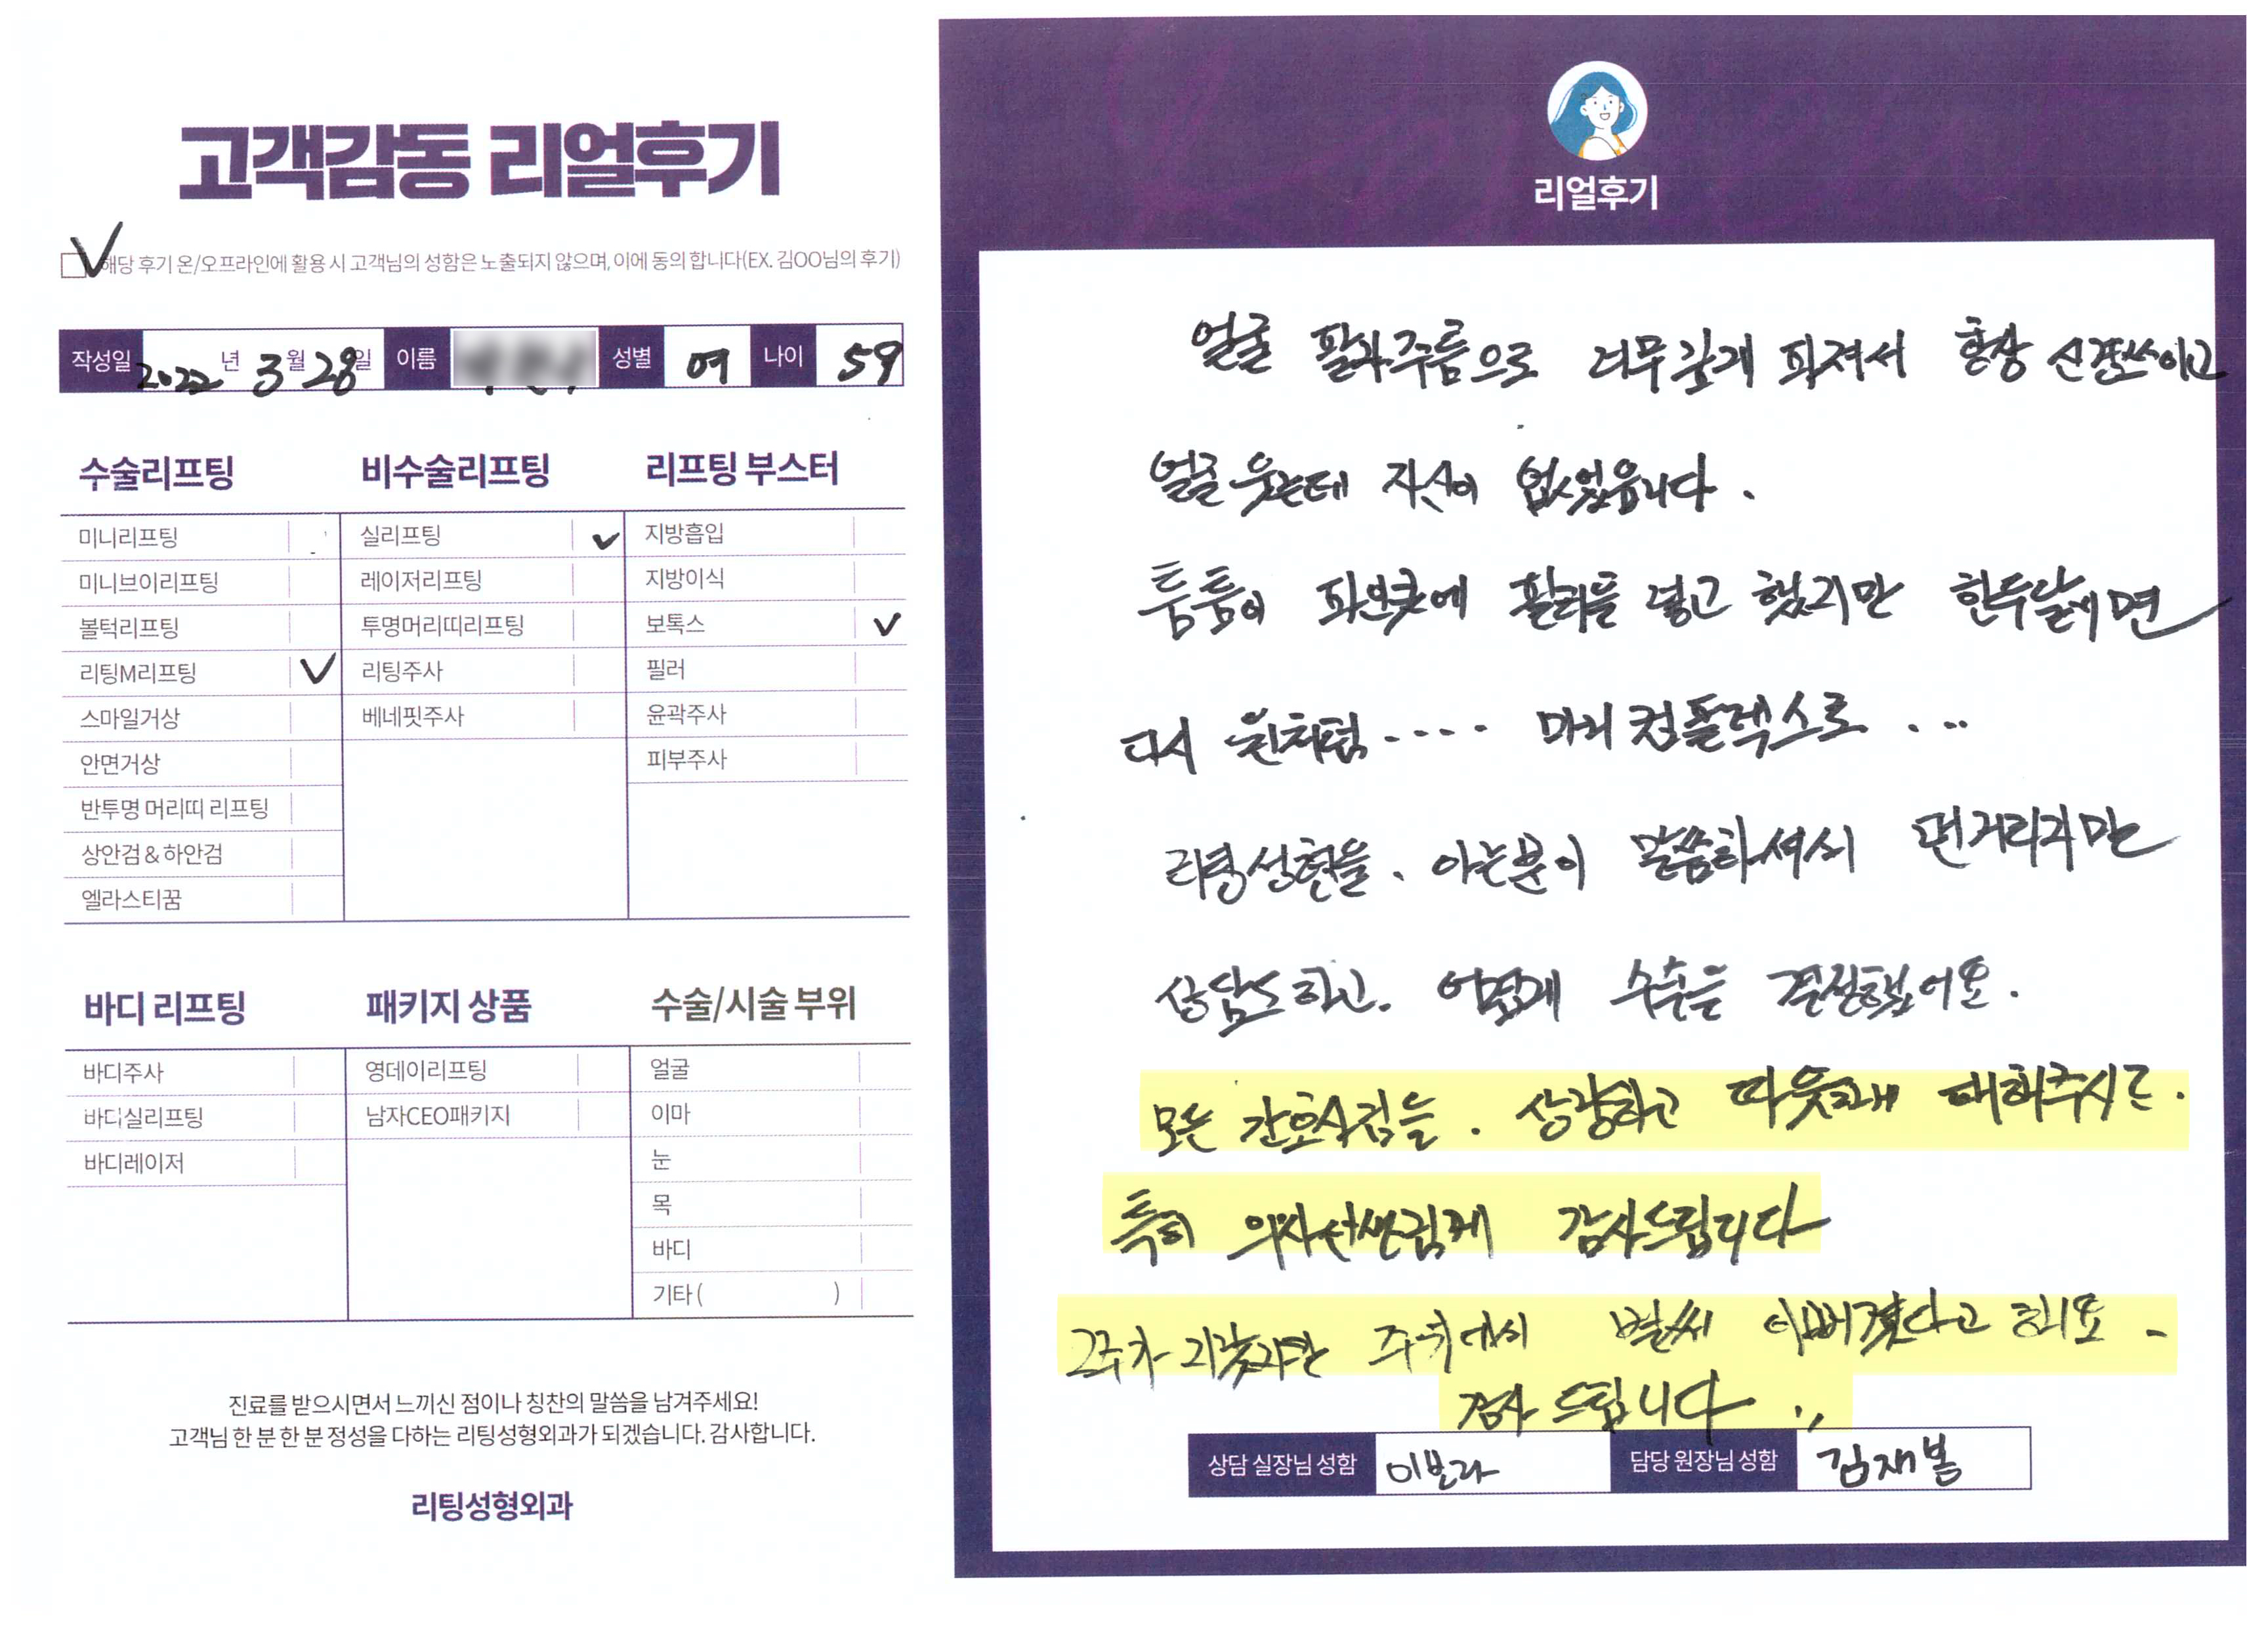 고객감동 리얼후기
해당 후기 온/오프라인에 활용 시 고객님의 성함은 노출되지 않으며, 이에 동의 합니다(EX. 김OO님의 후기)
작성일 2022 년 3 월 28 일 이름 성별 여 나이 59
수술리프팅
미니리프팅
미니브이리프팅
볼턱리프팅
리팅M리프팅
스마일거상
안면거상
반투명 머리띠 리프팅
상안검&하안검
엘라스티꿈
비수술리프팅
실리프팅
레이저리프팅
투명머리띠리프팅
리팅주사
베네핏주사
리프팅 부스터
지방흡입
지방이식
보톡스
필러
윤곽주사
피부주사
바디 리프팅
바디주사
바디실리프팅
바디레이저
패키지 상품
영데이리프팅
남자CEO패키지
수술/시술 부위
얼굴
이마
눈
목
바디
기타 ( )
진료를 받으시면서 느끼신 점이나 칭찬의 말씀을 남겨주세요!
고객님 한 분 한 분 정성을 다하는 리팅성형외과가 되겠습니다. 감사합니다.
리팅성형외과
리얼후기
얼굴 팔자주름으로 너무 깊게 파져서 항상 신경쓰이고
얼굴 웃는데 자신이 없었읍니다.
틈틈이 파인곳에 필러를 넣고 했지만 한두달이면
다시 원처럼 ···· 마리 컴플렉스로 ...
리팅성형을. 아는분이 말씀하셔서 먼거리지만
상담도 하고. 어렵게 수술을 결정했어요.
모든 간호사님들. 상냥하고 따뜻하게 대해주시고.
특히 의사선생님께 감사드립니다
2주차 지났지만 주위에서 벌써 이뻐졌다고 해요 -
감사 드립니다 ..
상담 실장님 성함 이보라 담당 원장님 성함 김재봉